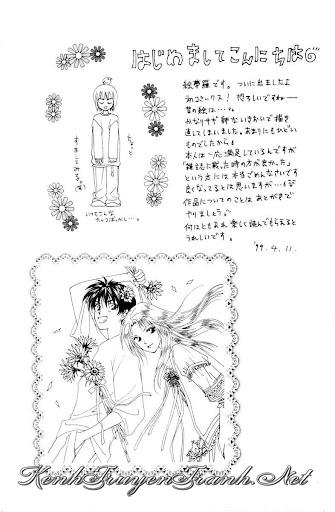 はじめましてこんにちは
絵夢羅です。ついに出ましたよ
初コミックス！恐ろしいですねー
昔の絵は…。
みなりすぎ 勢いきおいで描き
直してしまいました。あまりにもひどい
ものでしたから。
本人は一応満足しているんですが
「雑誌に載った時の方が良かった」
という方には本当ごめんなさいです
良くなってるとは思いますが…
作品についてのことはあとがきで
やりましょう。
何はともあれ、楽しく読んでもらえると
うれしいです。
'99. 4. 11.
ちょっと
いつもこんな
カッコばっかし…。
KenhTruyenTranh.Net